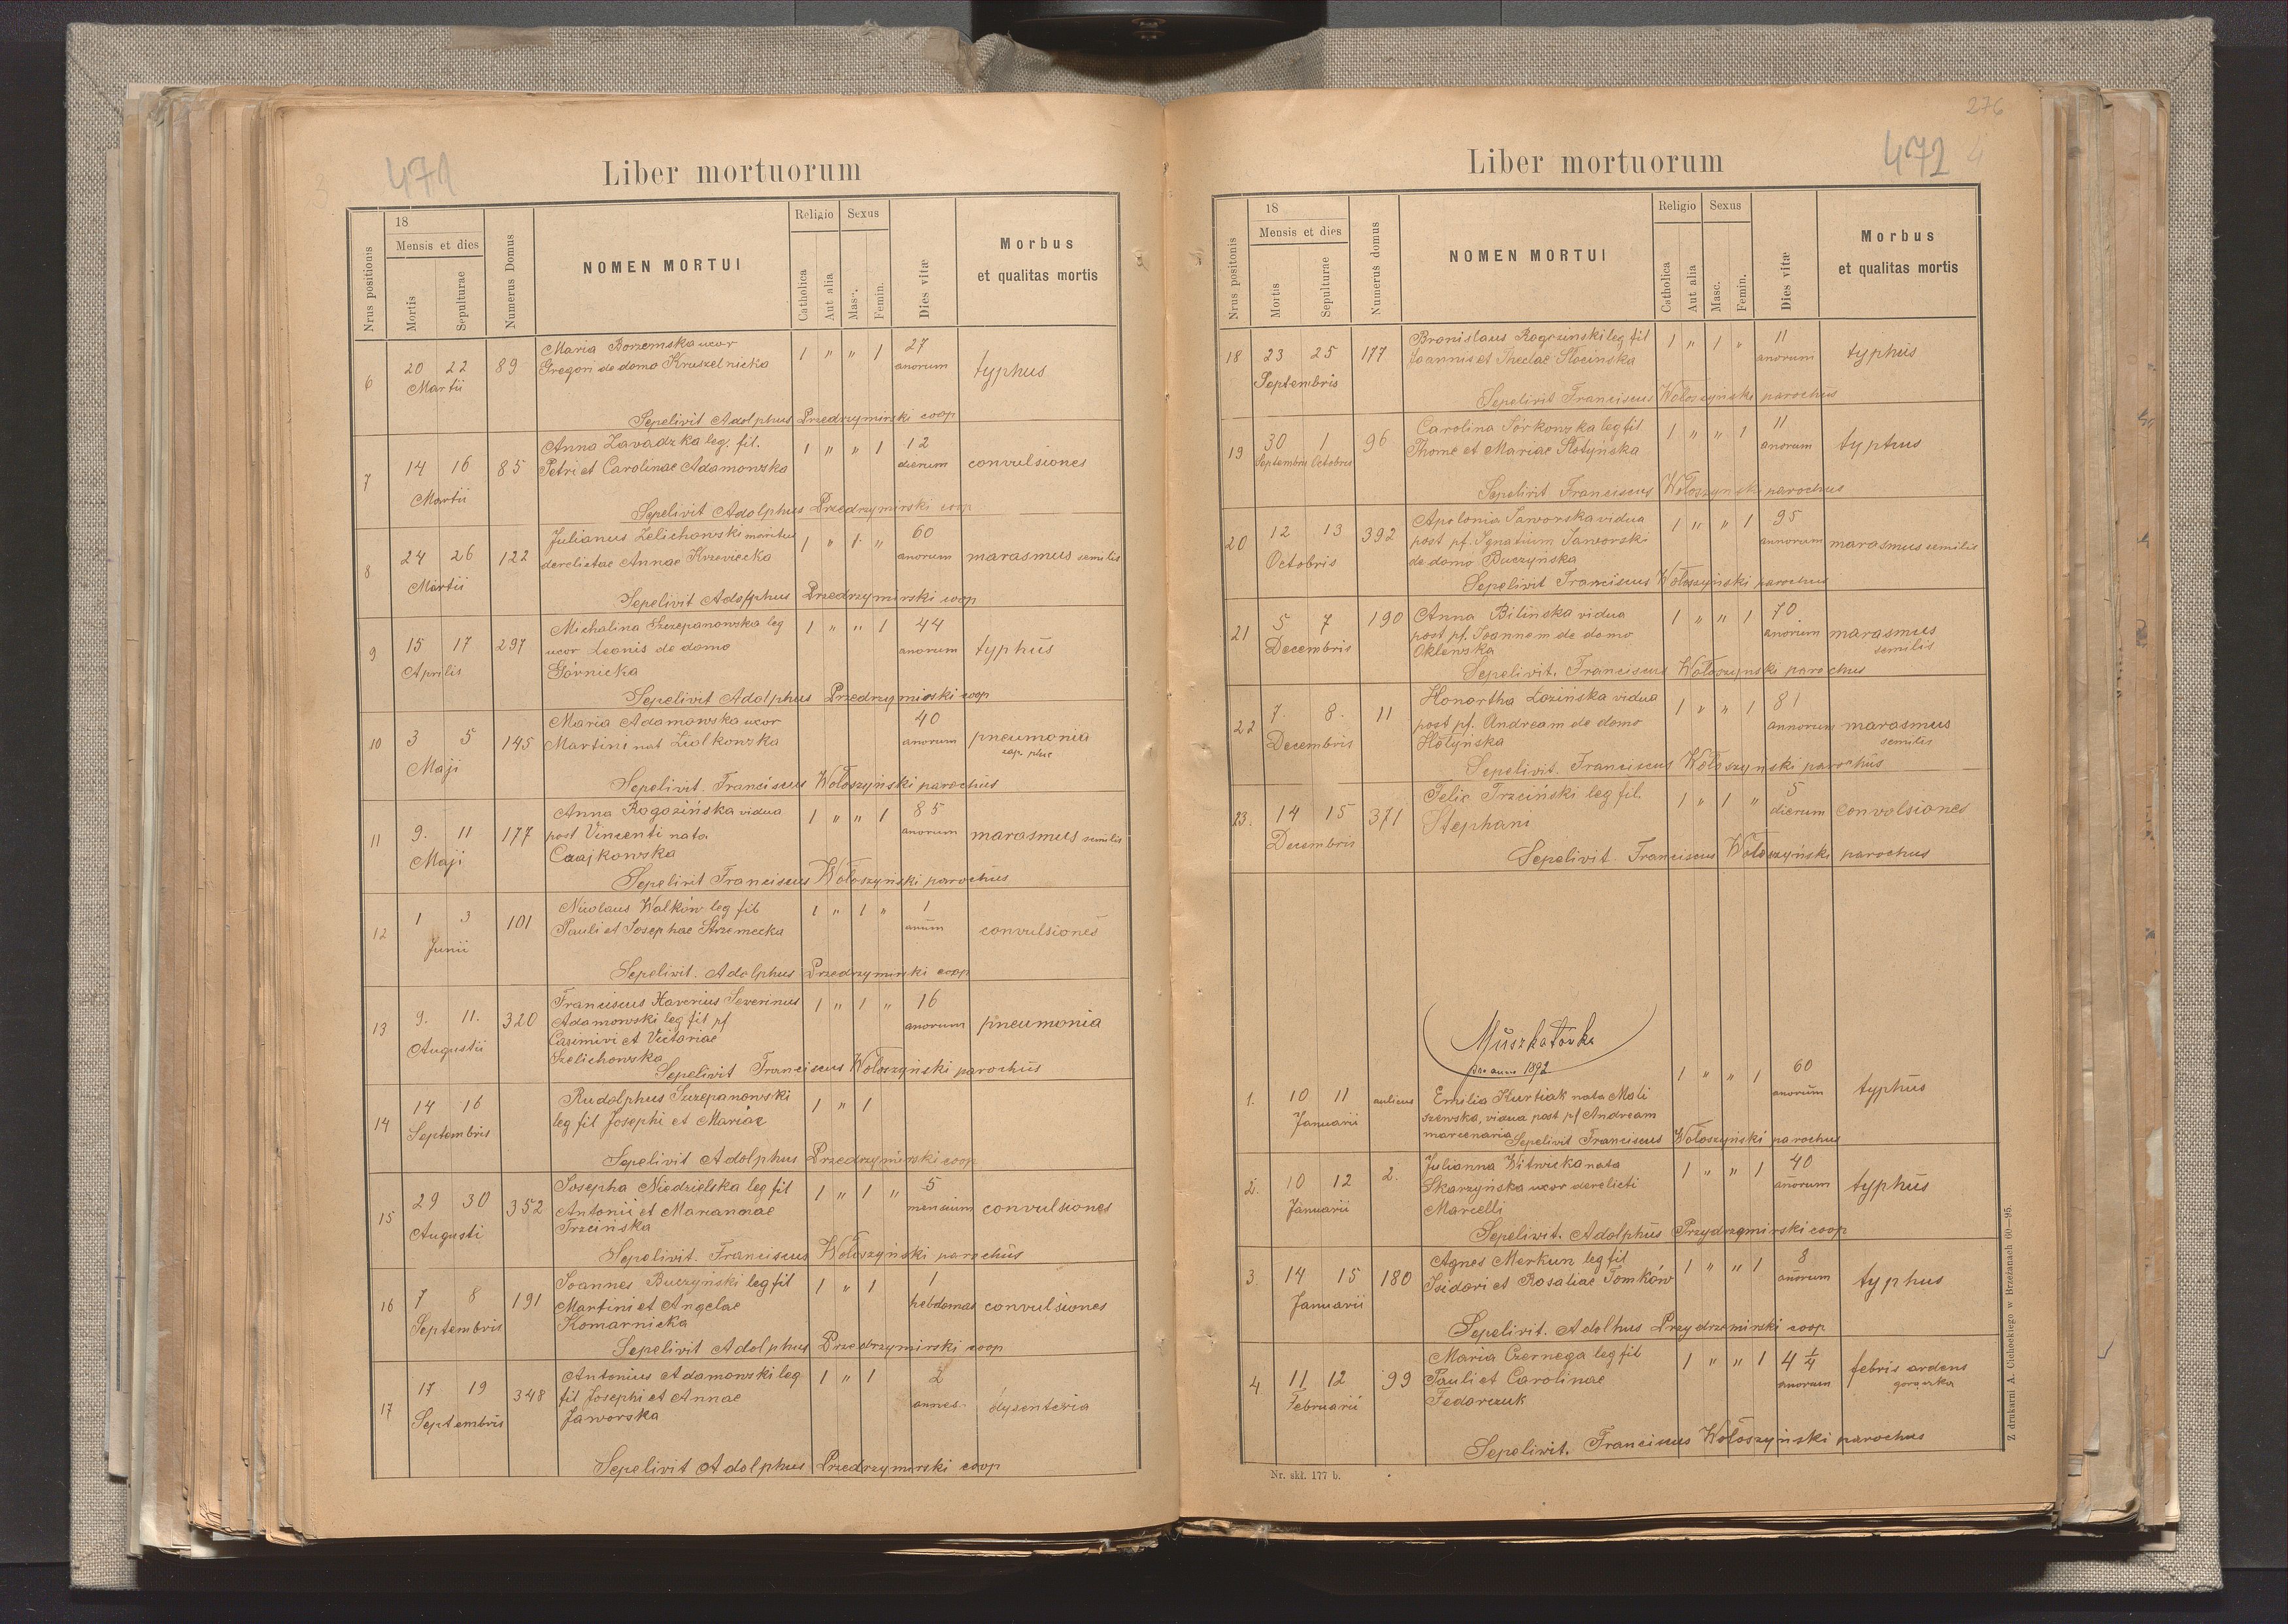 471
Liber mortuorum
Nrus positionis
18
Mensis et dies
Mortis
Sepulturae
Numerus Domus
NOMEN MORTUI
Religio
Catholica
Aut alia
Sexus
Masc.
Femin.
Dies vitæ
Morbus
et qualitas mortis
6 20 22 89 Maria Borzemska uxor 1 " " 1 27 typhus
Martii Gregori de domo Kruszelnicka anorum
Sepelivit Adolphus Przedrzymirski coop
7 14 16 85 Anna Zavadzka leg. fil. 1 " " 1 12 convulsiones
Martii Petri et Carolinae Adamowska dierum
Sepelivit Adolphus Przedrzymirski coop
8 24 26 122 Julianus Zelichowski maritus 1 " 1 " 60 marasmus semilis
Martii derelictae Annae Krzeviecka anorum
Sepelivit Adolphus Przedrzymirski coop
9 15 17 297 Michalina Szczepanowska leg 1 " " 1 44 typhus
Aprilis uxor Leonis de domo anorum
Górnicka
Sepelivit Adolphus Przedrzymirski coop
10 3 5 145 Maria Adamowska uxor 40 pneumonia
Maji Martini nat Ziolkowska anorum
Sepelivit. Franciscus Wołoszyński parochus
11 9. 11 177 Anna Rogozińska vidua 1 " " 1 85 marasmus semilis
Maji post Vincenti nata anorum
Czajkowska
Sepelivit Franciscus Wołoszyński parochus
12 1 3 101 Nicolaus Walków leg fil 1 " 1 " 1 convulsiones
Junii Pauli et Josephae Strzemecka anum
Sepelivit. Adolphus Przedrzymirski coop
13 9. 11. 320 Franciscus Xaverius Severinus 1 " 1 " 16 pneumonia
Augustii Adamowski leg fil pf anorum
Casimiri et Victoriae
Szelichowska
Sepelivit Franciscus Wołoszyński parochus
14 14 16 Rudolphus Suzepanowski 1 " 1
Septembris leg fil Josephi et Mariae
Sepelivit Adolphus Przedrzymirski coop
15 29 30 352 Josepha Niedzielska leg fil 1 " 1 " 5 convulsiones
Augusti Antonii et Mariannae mensium
Trzcińska
Sepelivit. Franciscus Wołoszyński parochus
16 7 8 191 Joannes Buczyński leg fil 1 " 1 1 convulsiones
Septembris Martini et Angelae hebdomas
Komarnicka
Sepelivit Adolphus Przedrzymirski coop
17 17 19 348 Antonius Adamowski leg 1 " 1 2 dysenteria
Septembris fil Josephi et Annae annes.
Jaworska
Sepelivit Adolphus Przedrzymirski coop
276
472
Liber mortuorum
Nrus positonis
18
Mensis et dies
Mortis
Sepulturae
Numerus domus
NOMEN MORTUI
Religio
Catholica
Aut alia
Sexus
Masc.
Femin.
Dies vitæ
Morbus
et qualitas mortis
18 23 25 177 Bronislaus Rogozinski leg fil 1 " 1 " 11 typhus
Septembris Joannis et Theclae Słocinska anorum
Sepelivit Franciscus Wołoszyński parochus
19 30 1 96 Carolina Sórkowska leg fil 1 " " 1 11 typhus
Septembris Octobris Thome et Mariae Hotyńska anorum
Sepelivit Franciscus Wołoszyński parochus
20 12 13 392 Apolonia Jaworska vidua 1 " " 1 95 marasmus semilis
Octobris post pf. Ignatium Jaworski annorum
de domo Buczyńska
Sepelivit Franciscus Wołoszyński parochus
21 5 7 190 Anna Bilińska vidua 1 " " 1 70 marasmus
Decembris post pf. Joannem de domo anorum semilis
Oklewska
Sepelivit. Franciscus Wołoszynski parochus
22 7. 8. 11 Honortha Łozińska vidua 1 " " 1 81 marasmus
Decembris post pf. Andream de domo annorum semilis
Hotyńska
Sepelivit. Franciscus Wołoszynski parochus
23. 14 15 371 Felic Trzciński leg fil. 1 " 1 " 5 convolsiones
Decembris Stephani dierum
Sepelivit. Franciscus Wołoszyński parochus
Muszkatówka
pro anno 1892
1. 10 11 aulicus Emilia Kurtiak nata Mali 1 " " 1 60 typhus
Januarii szewska, vidua post pf Andream anorum
marcenaria Sepelivit Franciscus Wołoszyński parochus
2. 10 12 2. Julianna Witwicka nata 1 " " 1 40 typhus
Januarii Skarzyńska uxor derelicti anorum
Marcelli
Sepelivit. Adolphus Przydrzymirski coop
3. 14 15 180 Agnes Merkun leg fil 1 " " 1 8 typhus
Januarii Isidori et Rosaliae Tomków anorum
Sepelivit. Adolhus Przydrzemirski coop
4 11 12 99 Maria Czernega leg fil 1 " " 1 4 1/4 febris ardens
Februarii Pauli et Carolinae anorum gorączka
Fedorczuk
Sepelivit. Franciscus Wołoszyński parochus
Nr. skł. 177 b.
Z drukarni A. Cichockiego w Brzeżanach 60—95.